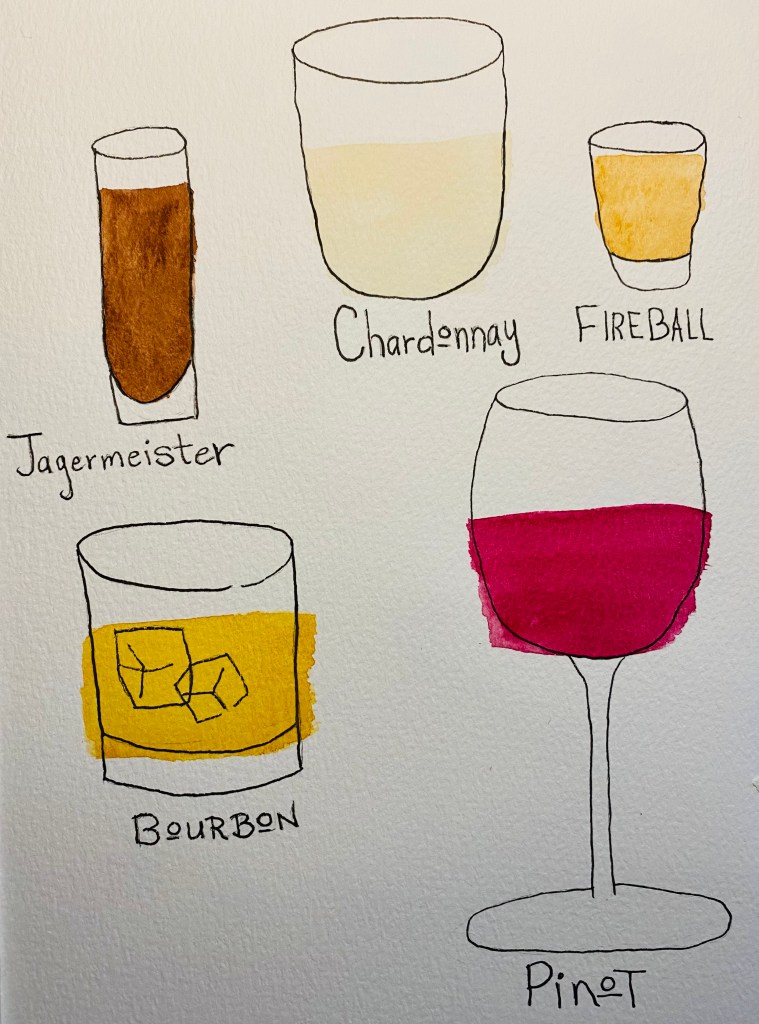 Chardonnay
FIREBALL
Jagermeister
BOURBON
PinoT